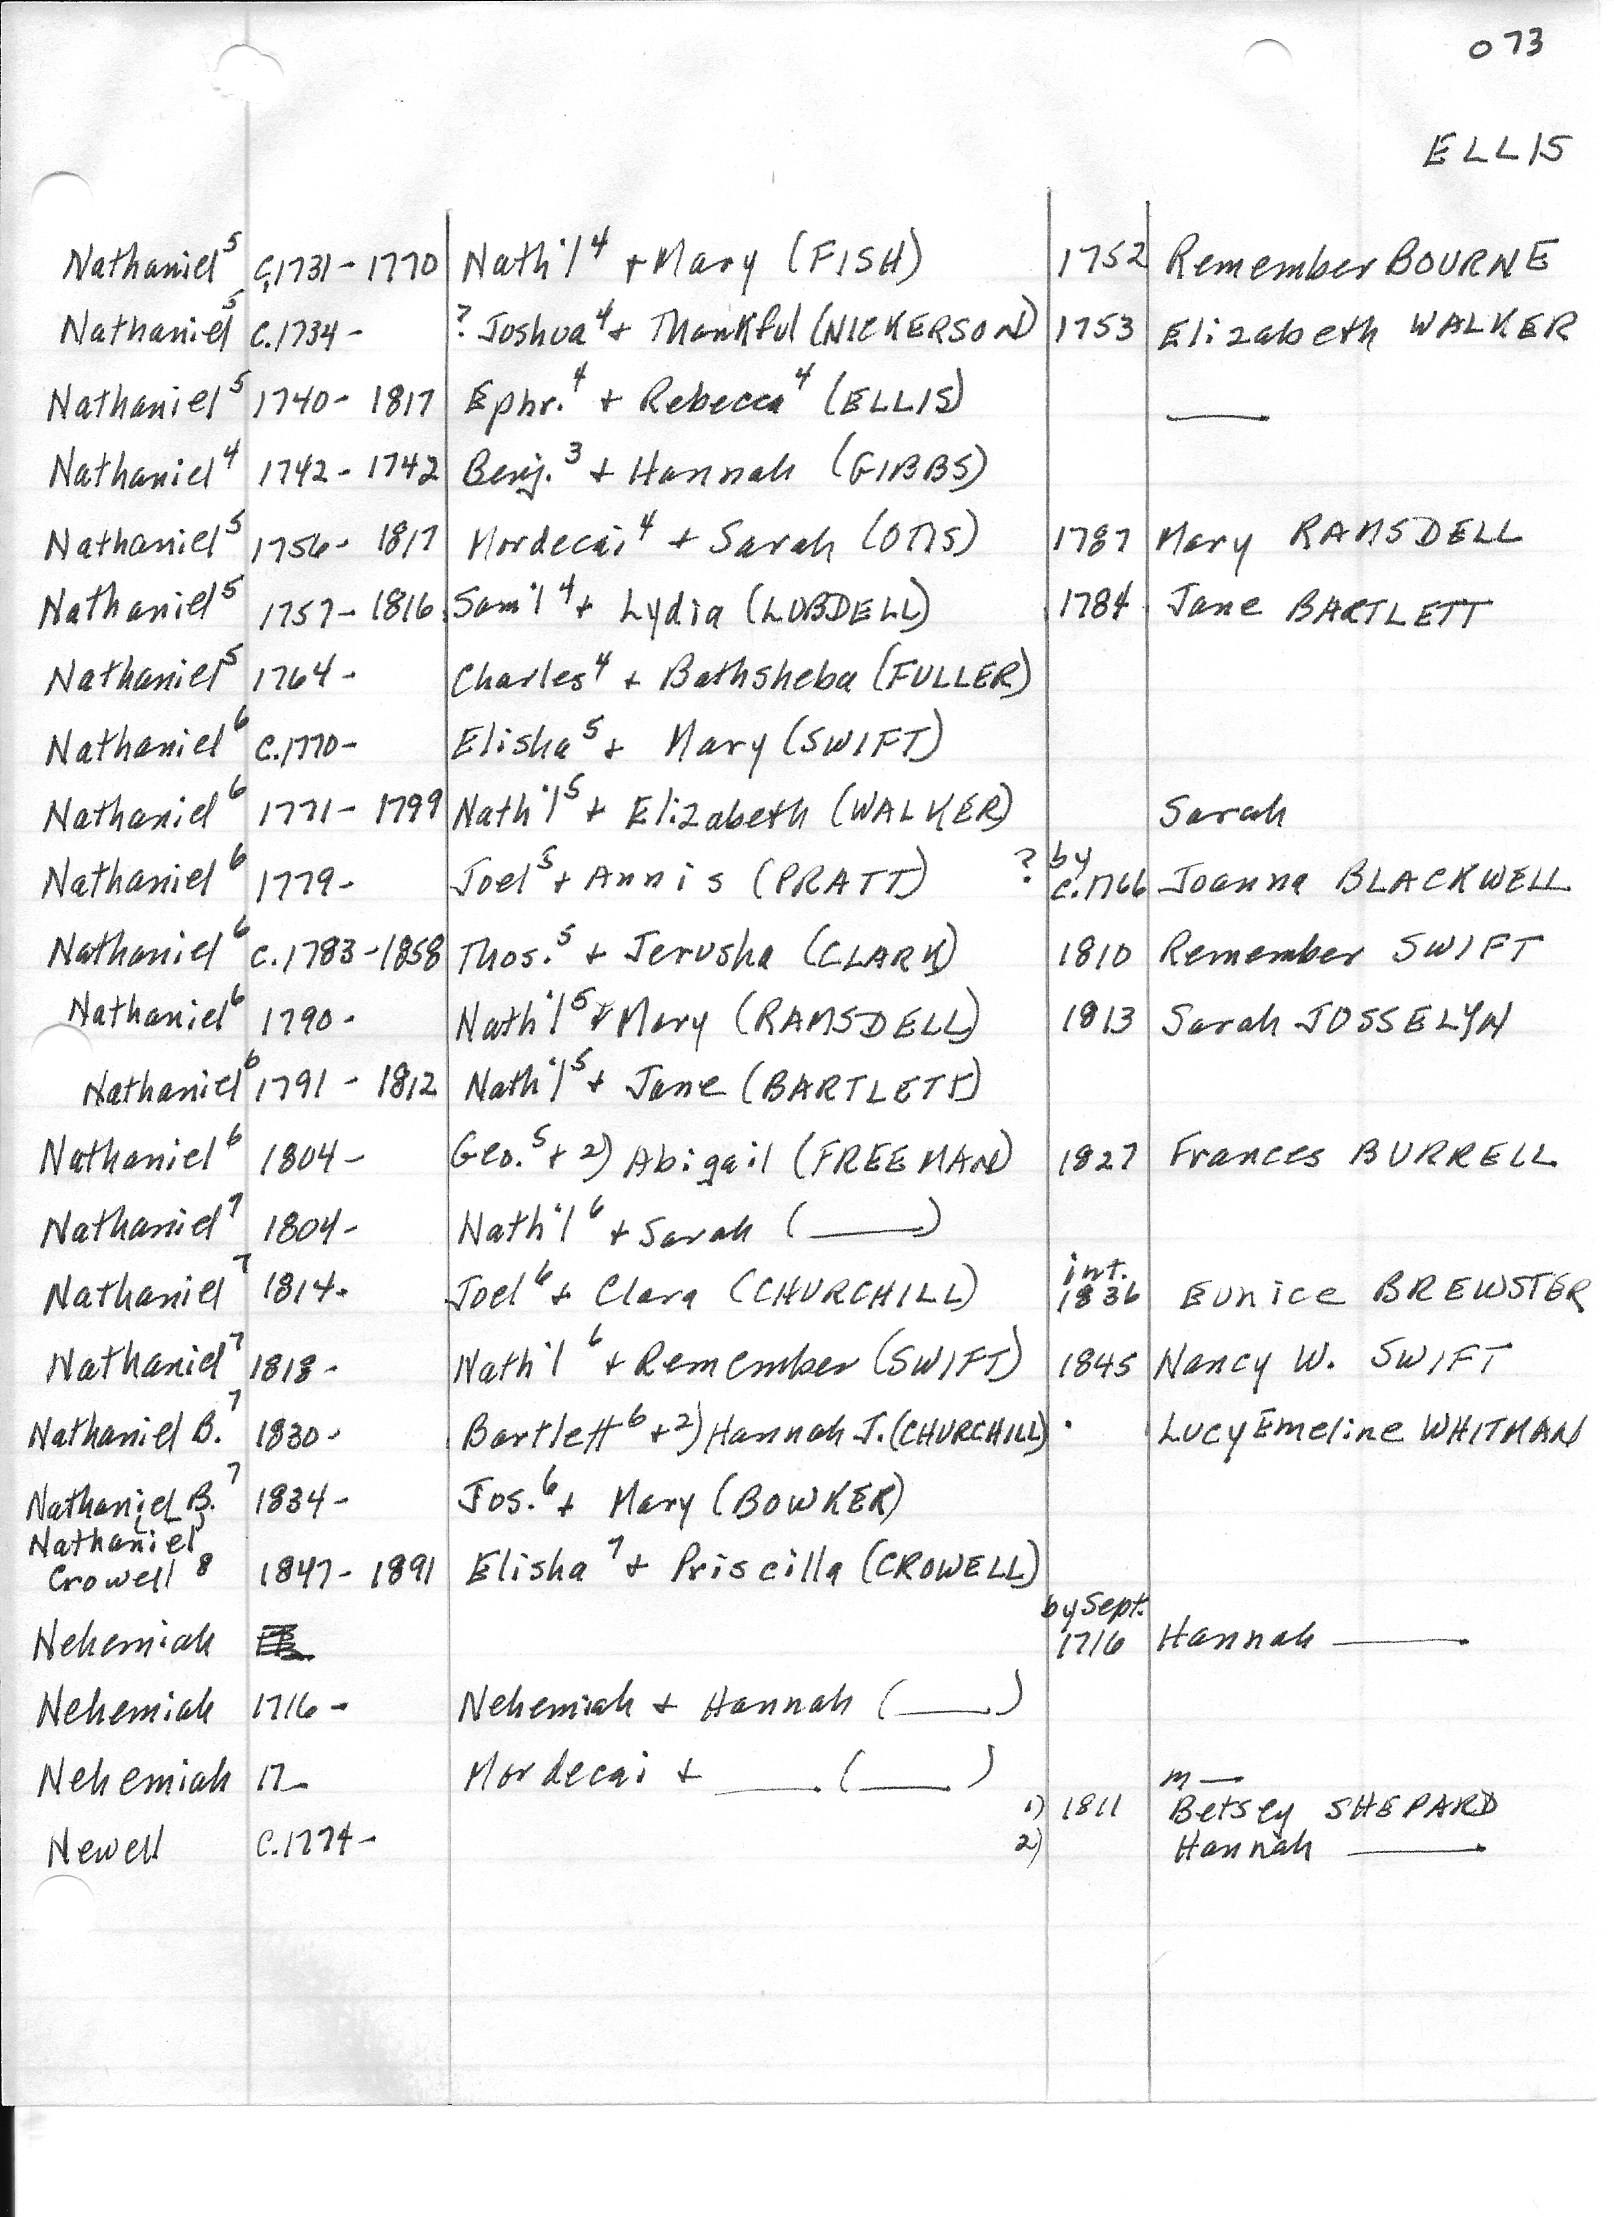 073
ELLIS
Nathaniel⁵ c.1731- 1770 Nath'l⁴ + Mary (FISH) 1752 Remember BOURNE
Nathaniel⁵ c.1734- ? Joshua⁴ + Thankful (NICKERSON) 1753 Elizabeth WALKER
Nathaniel⁵ 1740- 1817 Ephr.⁴ + Rebecca⁴ (ELLIS) ——
Nathaniel⁴ 1742- 1742 Benj.³ + Hannah (GIBBS)
Nathaniel⁵ 1756- 1817 Mordecai⁴ + Sarah (OTIS) 1787 Mary RAMSDELL
Nathaniel⁵ 1757- 1816 Sam'l⁴ + Lydia (LOBDELL) 1784 Jane BARTLETT
Nathaniel⁵ 1764- Charles⁴ + Bathsheba (FULLER)
Nathaniel⁶ c.1770- Elisha⁵ + Mary (SWIFT)
Nathaniel⁶ 1771- 1799 Nath'l⁵ + Elizabeth (WALKER) Sarah
Nathaniel⁶ 1779- Joel⁵ + Annis (PRATT) ? by c.1766 Joanna BLACKWELL
Nathaniel⁶ c.1783-1858 Thos.⁵ + Jerusha (CLARK) 1810 Remember SWIFT
Nathaniel⁶ 1790- Nath'l⁵ + Mary (RAMSDELL) 1813 Sarah JOSSELYN
Nathaniel⁶ 1791- 1812 Nath'l⁵ + Jane (BARTLETT)
Nathaniel⁶ 1804- Geo.⁵ + 2) Abigail (FREEMAN) 1827 Frances BURRELL
Nathaniel⁷ 1804- Nath'l⁶ + Sarah (____)
Nathaniel⁷ 1814- Joel⁶ + Clara (CHURCHILL) int. 1836 Eunice BREWSTER
Nathaniel⁷ 1818- Nath'l⁶ + Remember (SWIFT) 1845 Nancy W. SWIFT
Nathaniel B.⁷ 1830- Bartlett⁶ + 2) Hannah J. (CHURCHILL) Lucy Emeline WHITMAN
Nathaniel B.⁷ 1834- Jos.⁶ + Mary (BOWKER)
Nathaniel
Crowell⁸ 1847- 1891 Elisha⁷ + Priscilla (CROWELL)
Nehemiah by Sept. 1716 Hannah ____
Nehemiah 1716- Nehemiah + Hannah (____)
Nehemiah 17_ Mordecai + ____ (____) m—
1) 1811 Betsey SHEPARD
Newell c.1774- 2) Hannah ____